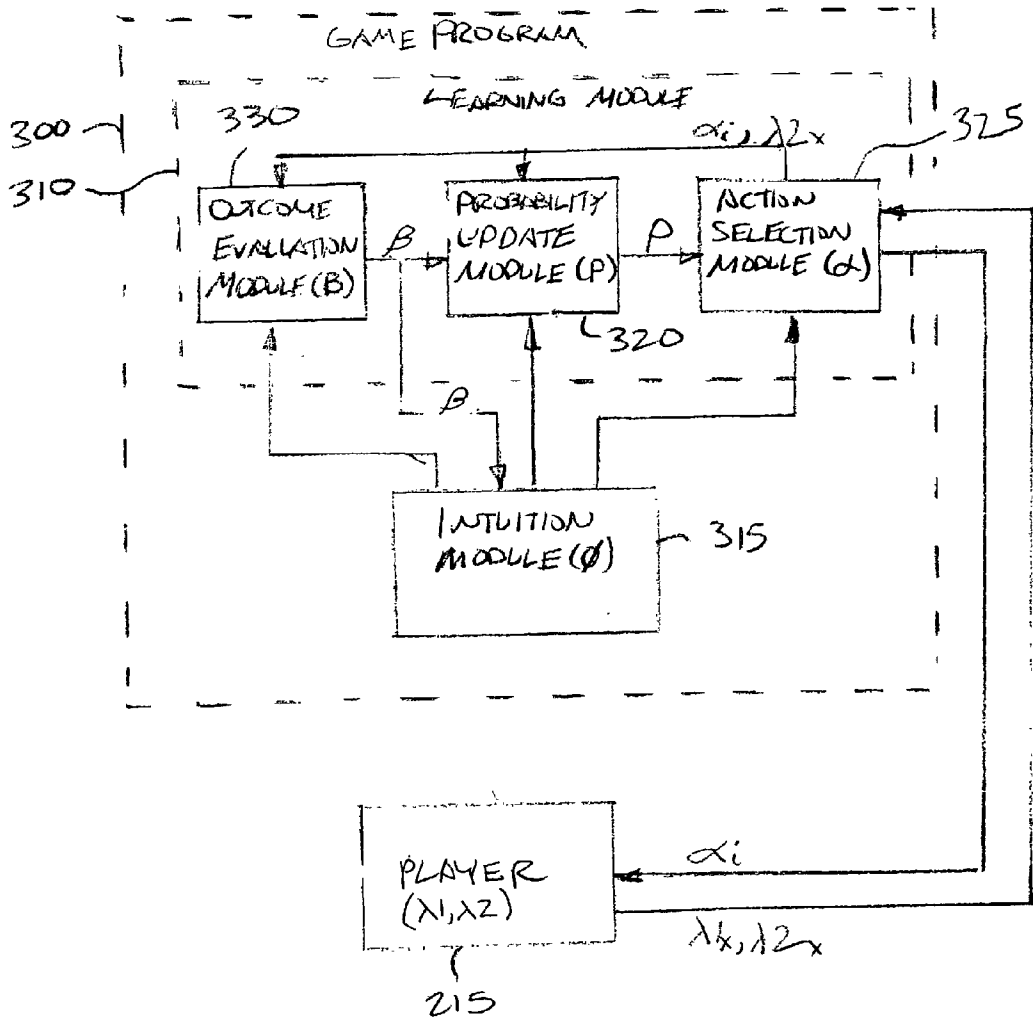 GAME PROGRAM
LEARNING MODULE
300
310
330
αi, λ2x
325
OUTCOME
EVALUATION
MODULE (β)
β
PROBABILITY
UPDATE
MODULE (P)
P
ACTION
SELECTION
MODULE (α)
320
β
INTUITION
MODULE (φ)
315
PLAYER
(λ1, λ2)
αi
λ1x, λ2x
215